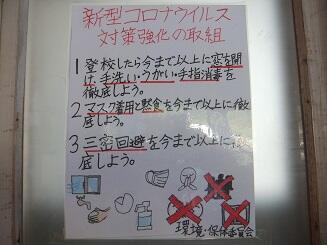 新型コロナウイルス
対策強化の取組
1 登校したら今まで以上に窓を開
け、手洗い・うがい・手指消毒を
徹底しよう。
2 マスク着用と黙食を今まで以上に徹
底しよう。
3 三密回避を今まで以上に徹
底しよう。
環境・保体委員会